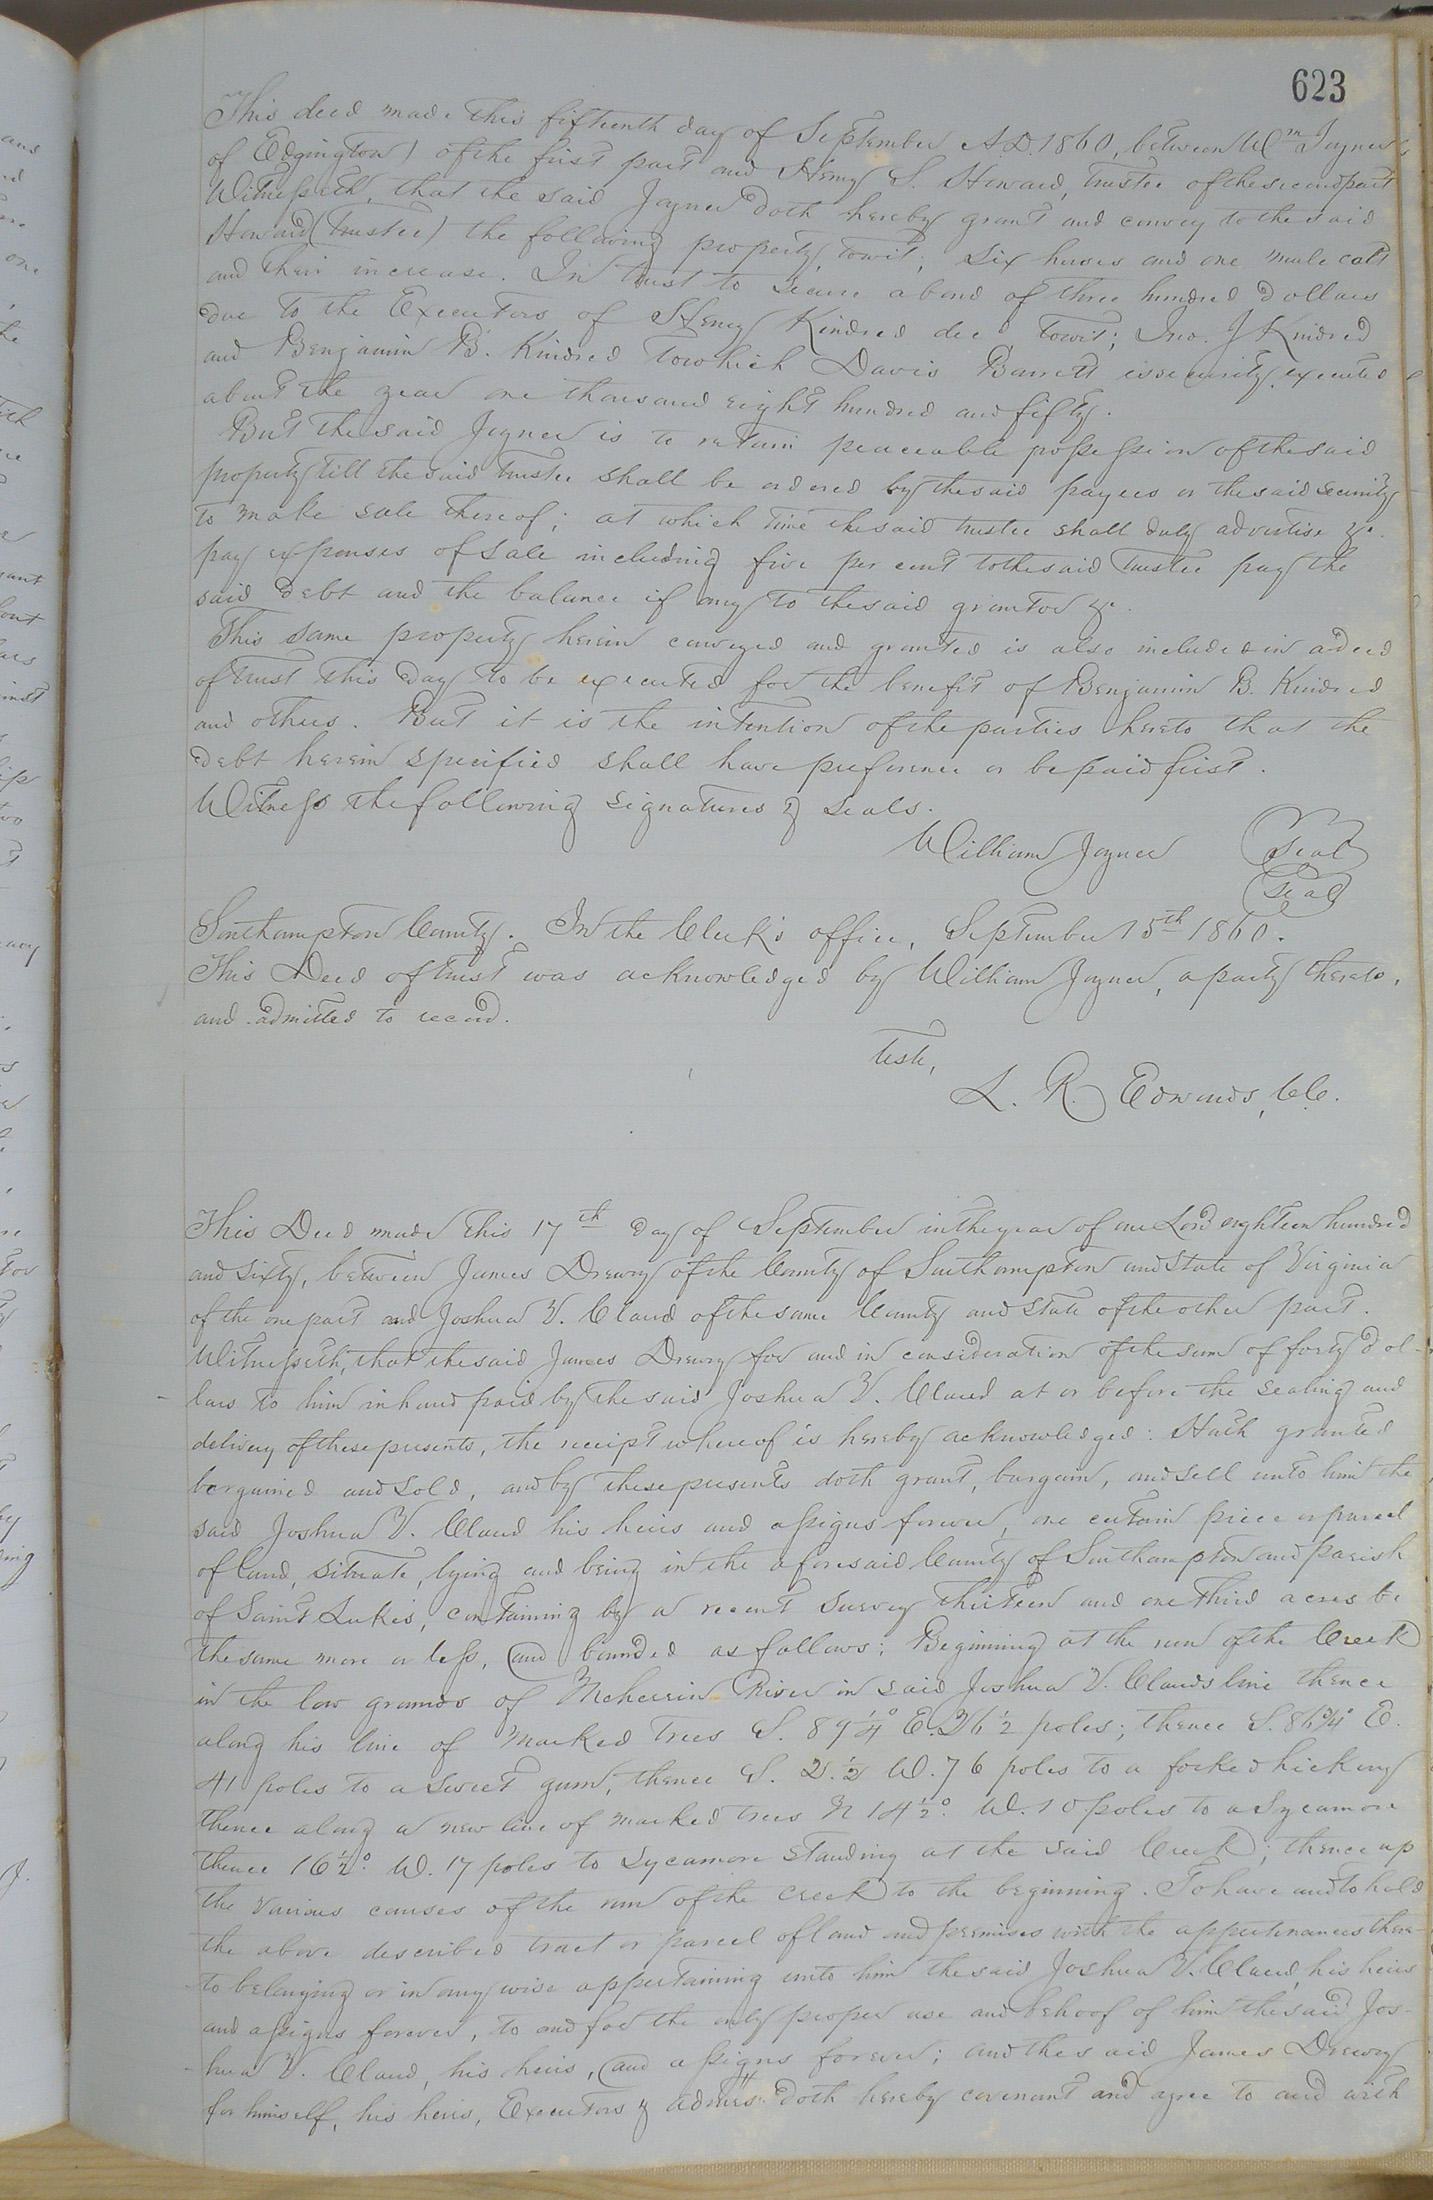 623
This deed made this fifteenth day of September A.D. 1860, between Wm Joyner
of Edgington) of the first part and Henry S. Howard, trustee of the second part
Witnesseth, that the said Joyner doth hereby grant and convey to the said
Howard (trustee) the following property, towit; six horses and one mule colt
and their increase. In trust to secure a bond of three hundred dollars
due to the Executors of Henry Kindred dec, towit; Jno. J Kindred
and Benjamin B. Kindred to which Davis Barrett is security, executed
about the year one thousand eight hundred and fifty.
But the said Joyner is to retain peaceable possession of the said
property till the said trustee shall be ordered by the said payees or the said security
to make sale thereof; at which time the said trustee shall duly advertise &c.
pay expenses of sale including five per cent to the said trustee pay the
said debt and the balance if any to the said grantor &c.
This same property herein conveyed and granted is also included in a deed
of trust this day to be executed for the benefit of Benjamin B. Kindred
and others. But it is the intention of the parties hereto that the
debt herein specified shall have preference or be paid first.
Witness the following signatures & seals.
William Joyner Seal
Seal
Southampton County. In the Clerk's office, September 15th 1860.
This Deed of trust was acknowledged by William Joyner, a party thereto,
and admitted to record.
Teste,
L. R. Edwards, CC.
This Deed made this 17th day of September in the year of our Lord eighteen hundred
and sixty, between James Drewry of the County of Southampton and State of Virginia
of the one part and Joshua V. Claud of the same County and State of the other part.
Witnesseth, that the said James Drewry for and in consideration of the sum of forty dol-
lars to him in hand paid by the said Joshua V. Claud at or before the sealing and
delivery of these presents, the receipt whereof is hereby acknowledged: Hath granted
bargained and sold, and by these presents doth grant, bargain, and sell unto him the
said Joshua V. Claud his heirs and assigns forever, one certain piece or parcel
of land, situate, lying and being in the aforesaid County of Southampton and parish
of Saint Luke's, containing by a recent survey thirteen and one third acres be
the same more or less, and bounded as follows; Beginning at the run of the Creek
in the low grounds of Meherrin River in said Joshua V. Clauds line thence
along his line of marked trees S. 89 1/4° E. 36 1/2 poles; thence S. 86 3/4° E.
41 poles to a sweet gum, thence S. 2. 1/2 W. 76 poles to a forked hickory
thence along a new line of marked trees N 14 1/2°. W. 10 poles to a Sycamore
thence 16 1/2°. W. 17 poles to Sycamore standing at the said Creek; thence up
the various courses of the run of the creek to the beginning. To have and to hold
the above described tract or parcel of land and premises with the appertenances there-
to belonging or in any wise appertaining unto him the said Joshua V. Claud, his heirs
and assigns forever, to and for the only proper use and behoof of him the said Jos-
hua V. Claud, his heirs, and assigns forever; and the said James Drewry
for himself, his heirs, Executors & admrs doth hereby covenant and agree to and with